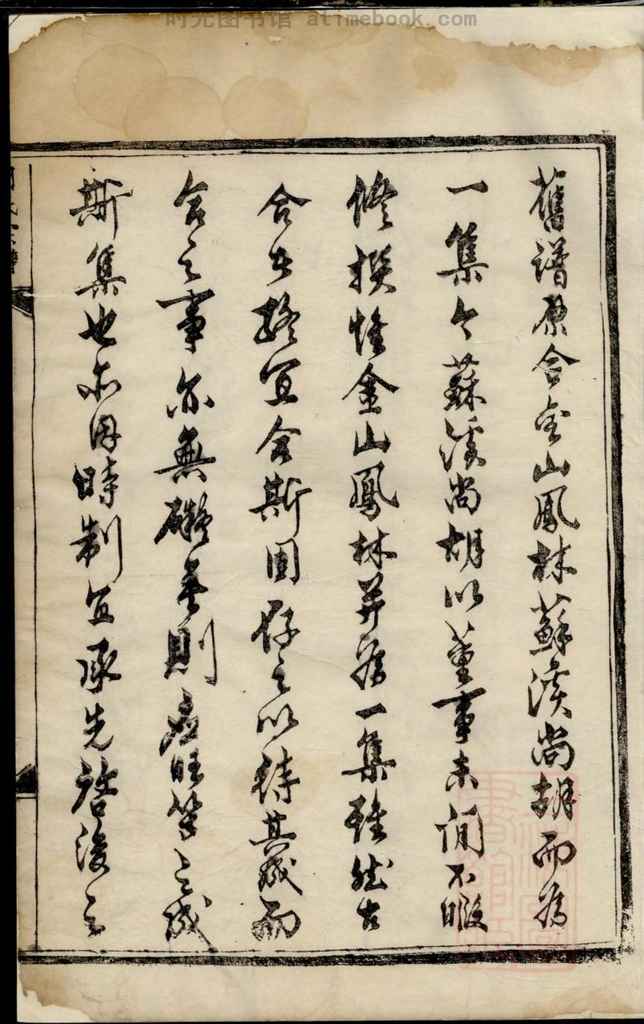 时光图书馆 atimebook.com
舊譜原合金山鳳林蘇溪尚胡而為
一集今蘇溪尚胡以董事未閒不暇
修撰惟金山鳳林并為一集雖然古
合者終宜合斯固存之以待其成而
合之事亦無礙其則應旺等之成
斯集也亦因時制宜承先啓後之